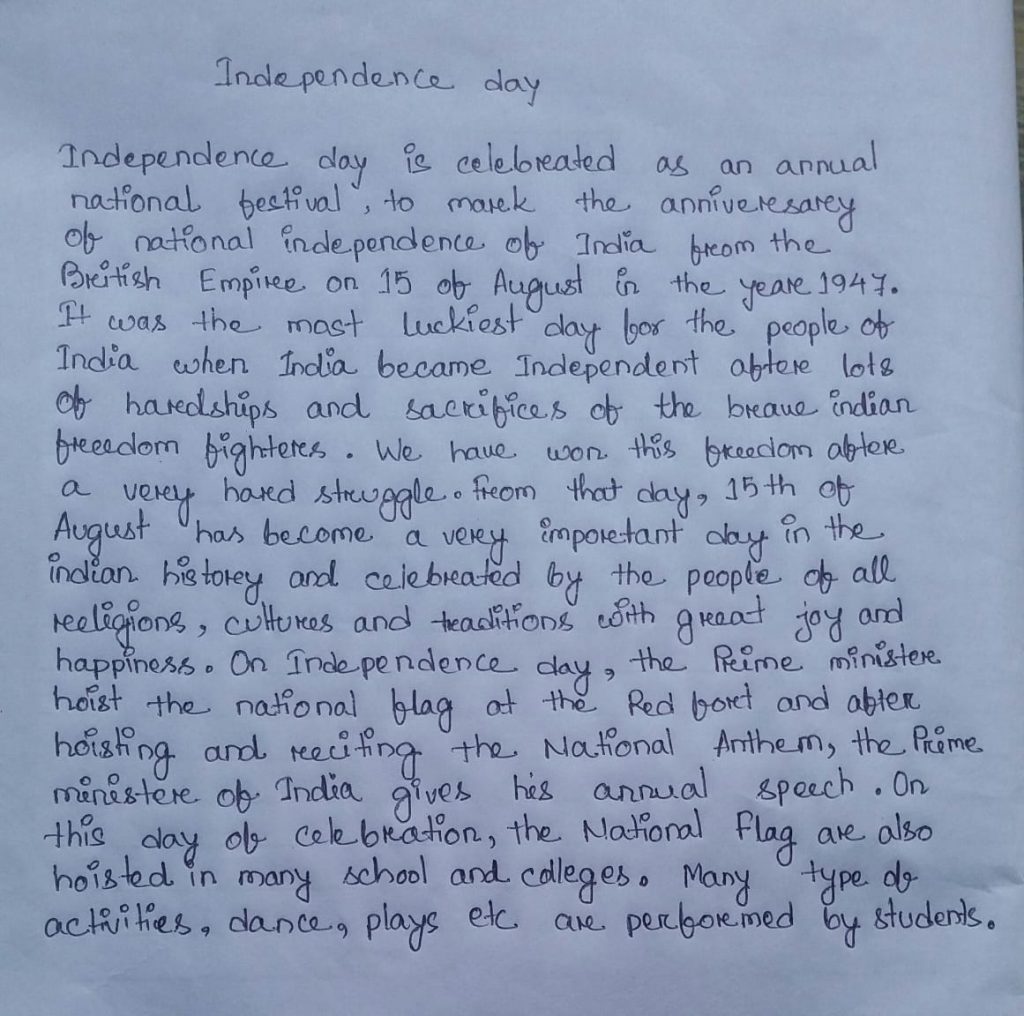 Independence day
Independence day is celebrated as an annual
national festival, to mark the anniversary
of national independence of India from the
British Empire on 15 of August in the year 1947.
It was the most luckiest day for the people of
India when India became Independent after lots
of hardships and sacrifices of the brave indian
freedom fighters. We have won this freedom after
a very hard struggle. From that day, 15th of
August has become a very important day in the
indian history and celebrated by the people of all
religions, cultures and traditions with great joy and
happiness. On Independence day, the Prime minister
hoist the national flag at the Red fort and after
hoisting and reciting the National Anthem, the Prime
minister of India gives his annual speech. On
this day of celebration, the National Flag are also
hoisted in many school and colleges. Many type of
activities, dance, plays etc are performed by students.